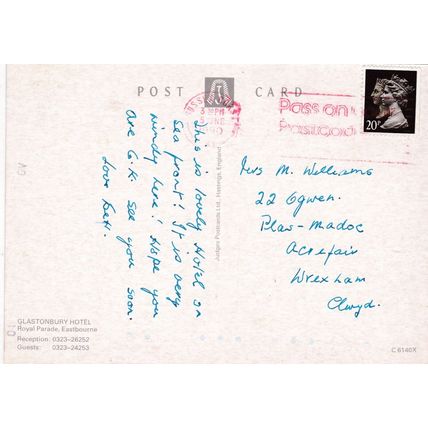 POST CARD
SUSSEX
3 PM
JNE
1990
Pass on
Postcode
20P
This is lovely Hotel on
Sea front! It is very
windy here! Hope you
are O.K. See you soon.
Love
Judges Postcards Ltd., Hastings, England
Mrs M. Williams
22 Ogwen.
Plas-Madoc
Acrefair
Wrexham
Clwyd.
GLASTONBURY HOTEL
Royal Parade, Eastbourne
Reception: 0323-26252
Guests: 0323-24253
C 6140X